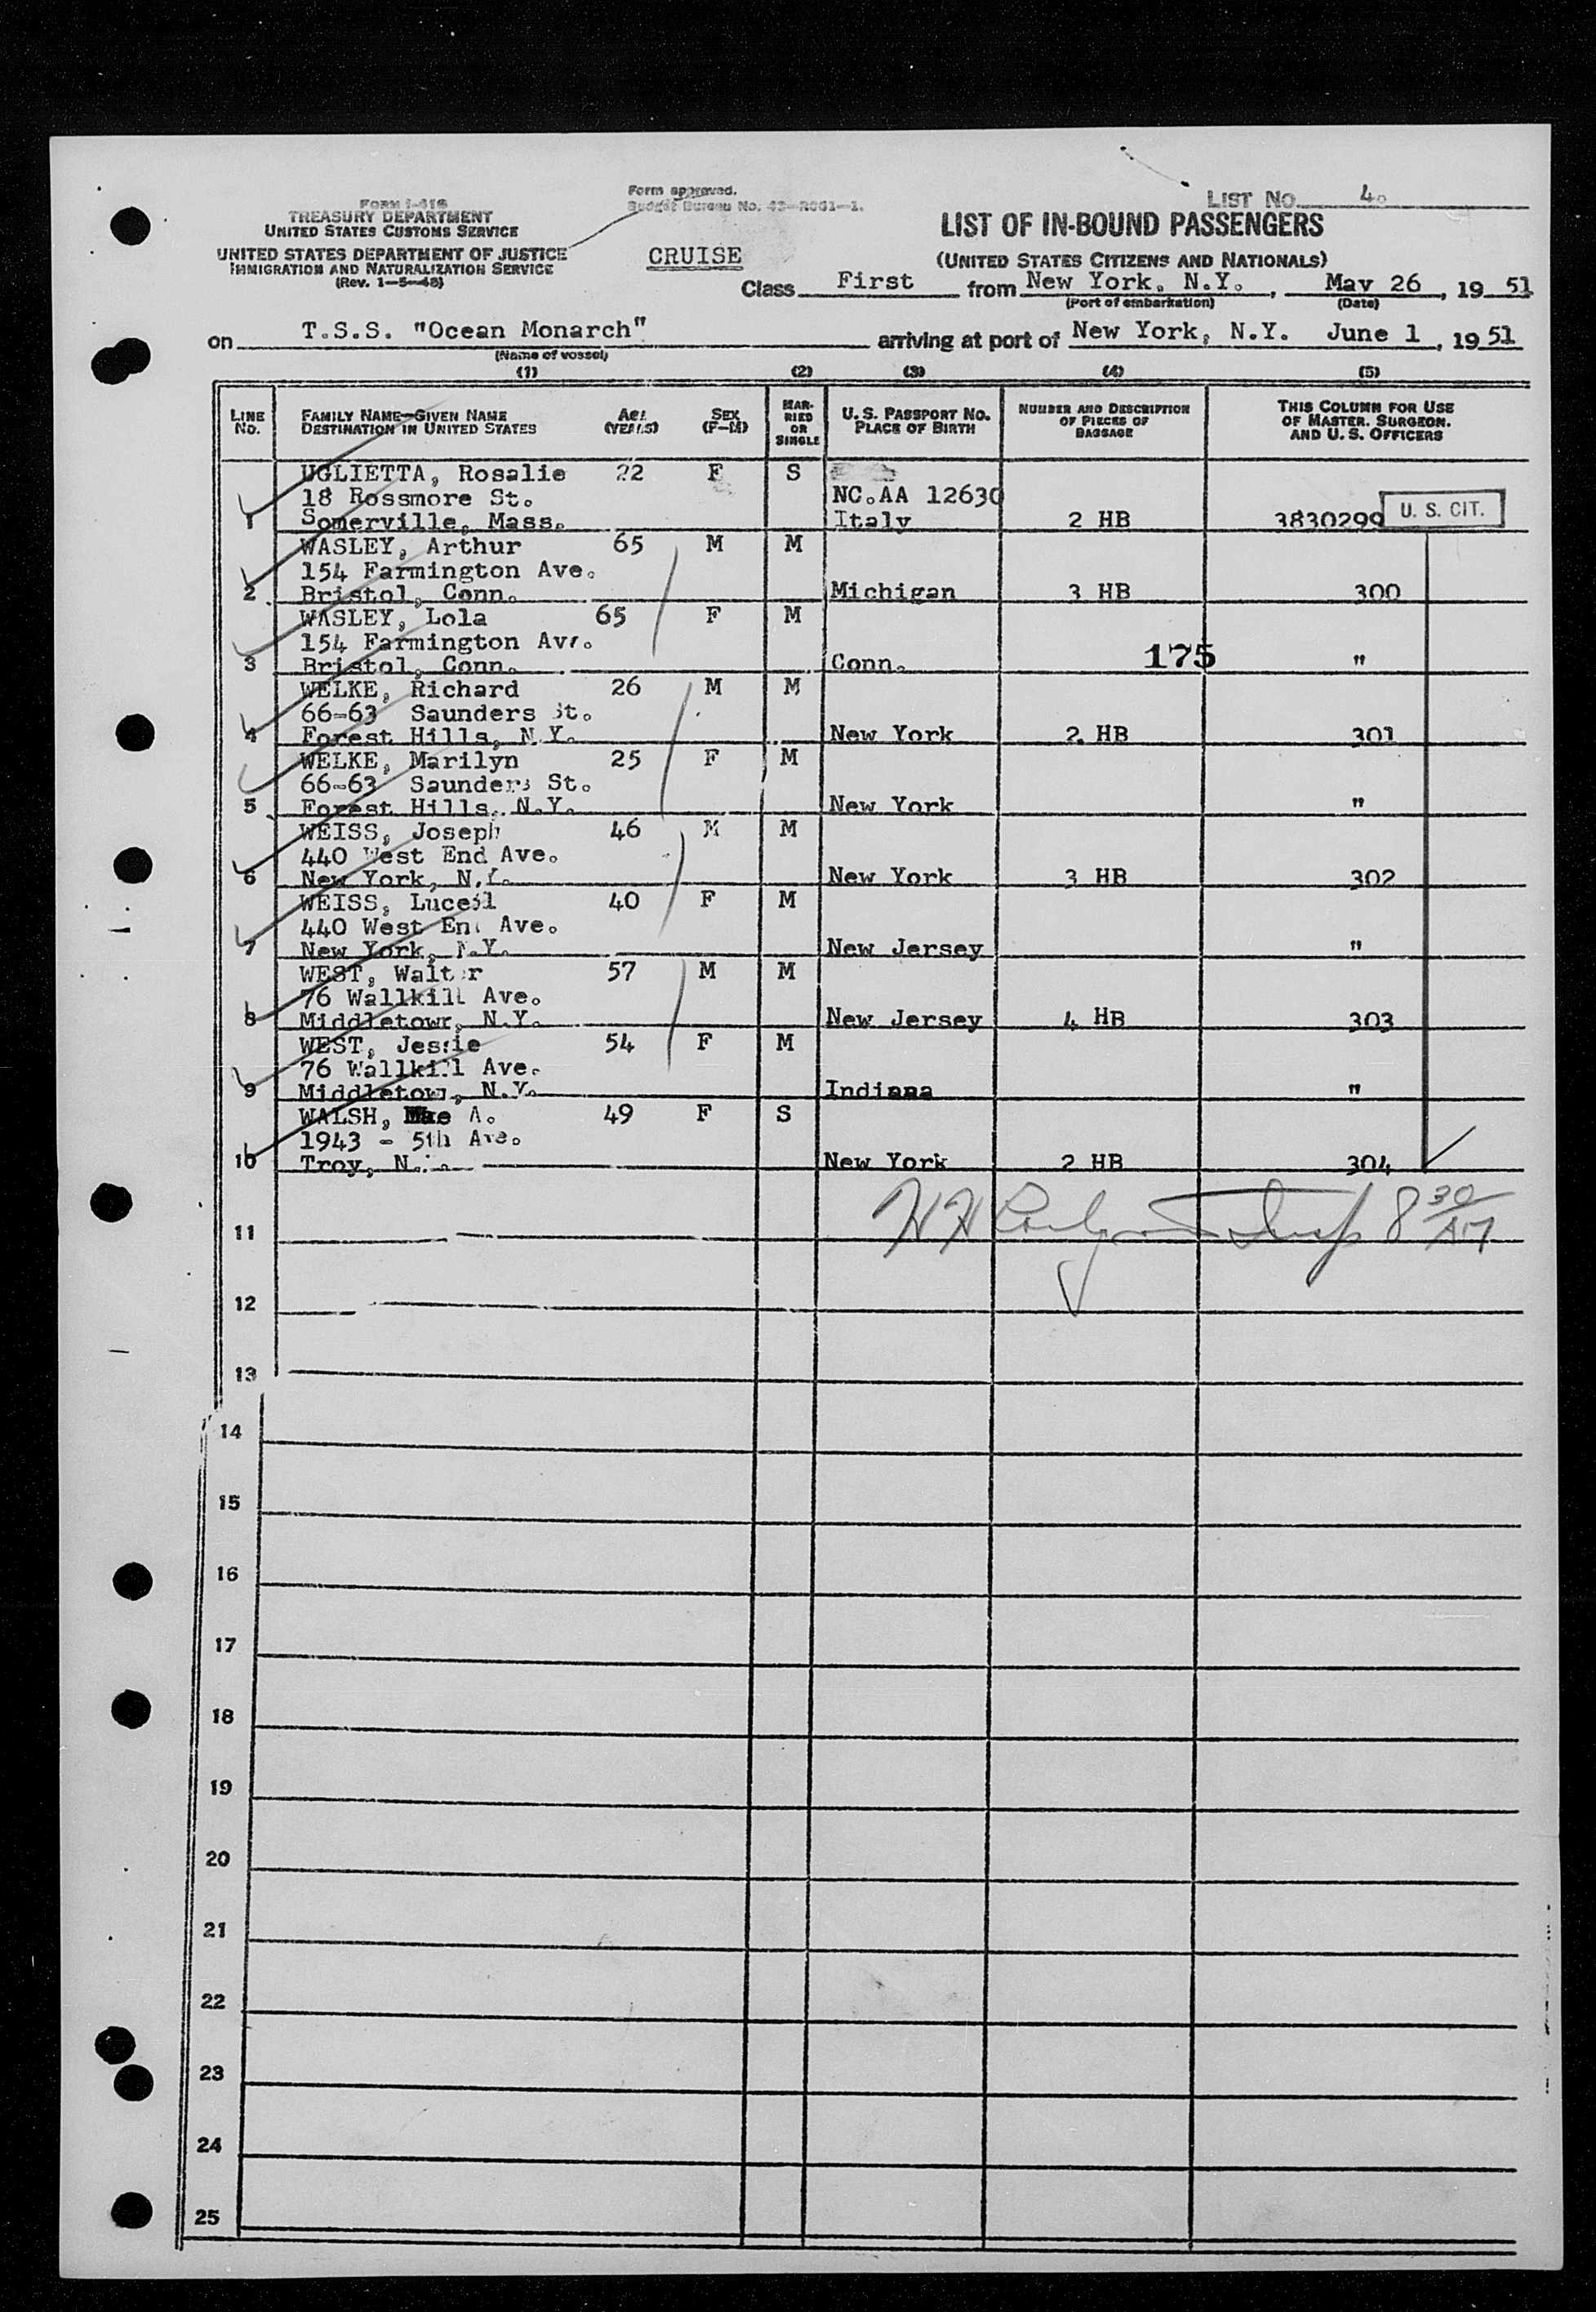 FORM I-416
TREASURY DEPARTMENT
UNITED STATES CUSTOMS SERVICE
UNITED STATES DEPARTMENT OF JUSTICE
IMMIGRATION AND NATURALIZATION SERVICE
(Rev. 1-5-48)
Form approved.
Budget Bureau No. 43-R061-1.
CRUISE
LIST NO. 4.
LIST OF IN-BOUND PASSENGERS
(UNITED STATES CITIZENS AND NATIONALS)
Class First from New York, N.Y., May 26, 1951
(Port of embarkation) (Date)
on T.S.S. "Ocean Monarch" arriving at port of New York, N.Y. June 1, 1951
(Name of vessel)
(1) (2) (3) (4) (5)
LINE NO. FAMILY NAME—GIVEN NAME DESTINATION IN UNITED STATES AGE (YEARS) SEX (F-M) MARRIED OR SINGLE U. S. PASSPORT NO. PLACE OF BIRTH NUMBER AND DESCRIPTION OF PIECES OF BAGGAGE THIS COLUMN FOR USE OF MASTER, SURGEON, AND U. S. OFFICERS
UGLIETTA, Rosalie 22 F S
18 Rossmore St. NC.AA 12630
1 Somerville, Mass. Italy 2 HB 3830299 U. S. CIT.
WASLEY, Arthur 65 M M
154 Farmington Ave.
2 Bristol, Conn. Michigan 3 HB 300
WASLEY, Lola 65 F M
154 Farmington Ave.
3 Bristol, Conn. Conn. 175 "
WELKE, Richard 26 M M
66-63 Saunders St.
4 Forest Hills, N.Y. New York 2 HB 301
WELKE, Marilyn 25 F M
66-63 Saunders St.
5 Forest Hills, N.Y. New York "
WEISS, Joseph 46 M M
440 West End Ave.
6 New York, N.Y. New York 3 HB 302
WEISS, Luceil 40 F M
440 West End Ave.
7 New York, N.Y. New Jersey "
WEST, Walter 57 M M
76 Wallkill Ave.
8 Middletown, N.Y. New Jersey 4 HB 303
WEST, Jessie 54 F M
76 Wallkill Ave.
9 Middletown, N.Y. Indiana "
WALSH, Mae A. 49 F S
1943 - 5th Ave.
10 Troy, N.Y. New York 2 HB 304
11 Insp 8 30/AM
12
13
14
15
16
17
18
19
20
21
22
23
24
25